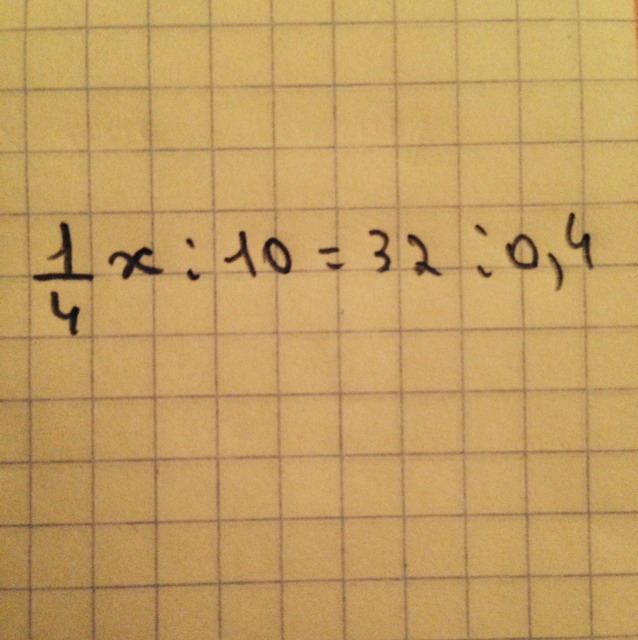 1/4 x : 10 = 32 : 0,4